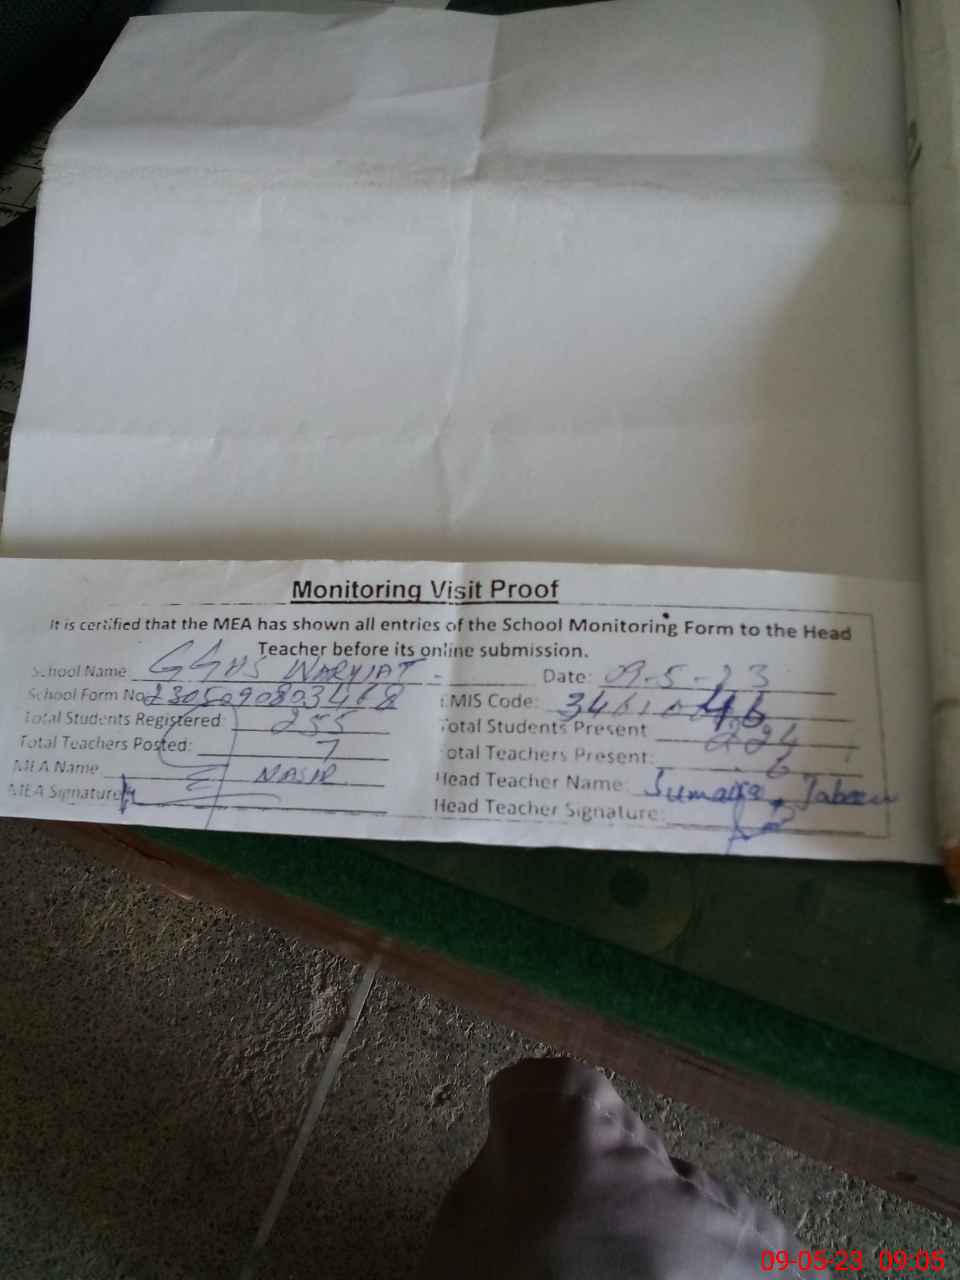 Monitoring Visit Proof
It is certified that the MEA has shown all entries of the School Monitoring Form to the Head
Teacher before its online submission.
School Name Date: 09-5-23
School Form No MIS Code:
Total Students Registered: 255 Total Students Present
Total Teachers Posted: 7 Total Teachers Present: 6
MEA Name NASIR Head Teacher Name: Sumaira Jabeen
MEA Signature Head Teacher Signature:
09-05-23 09:05